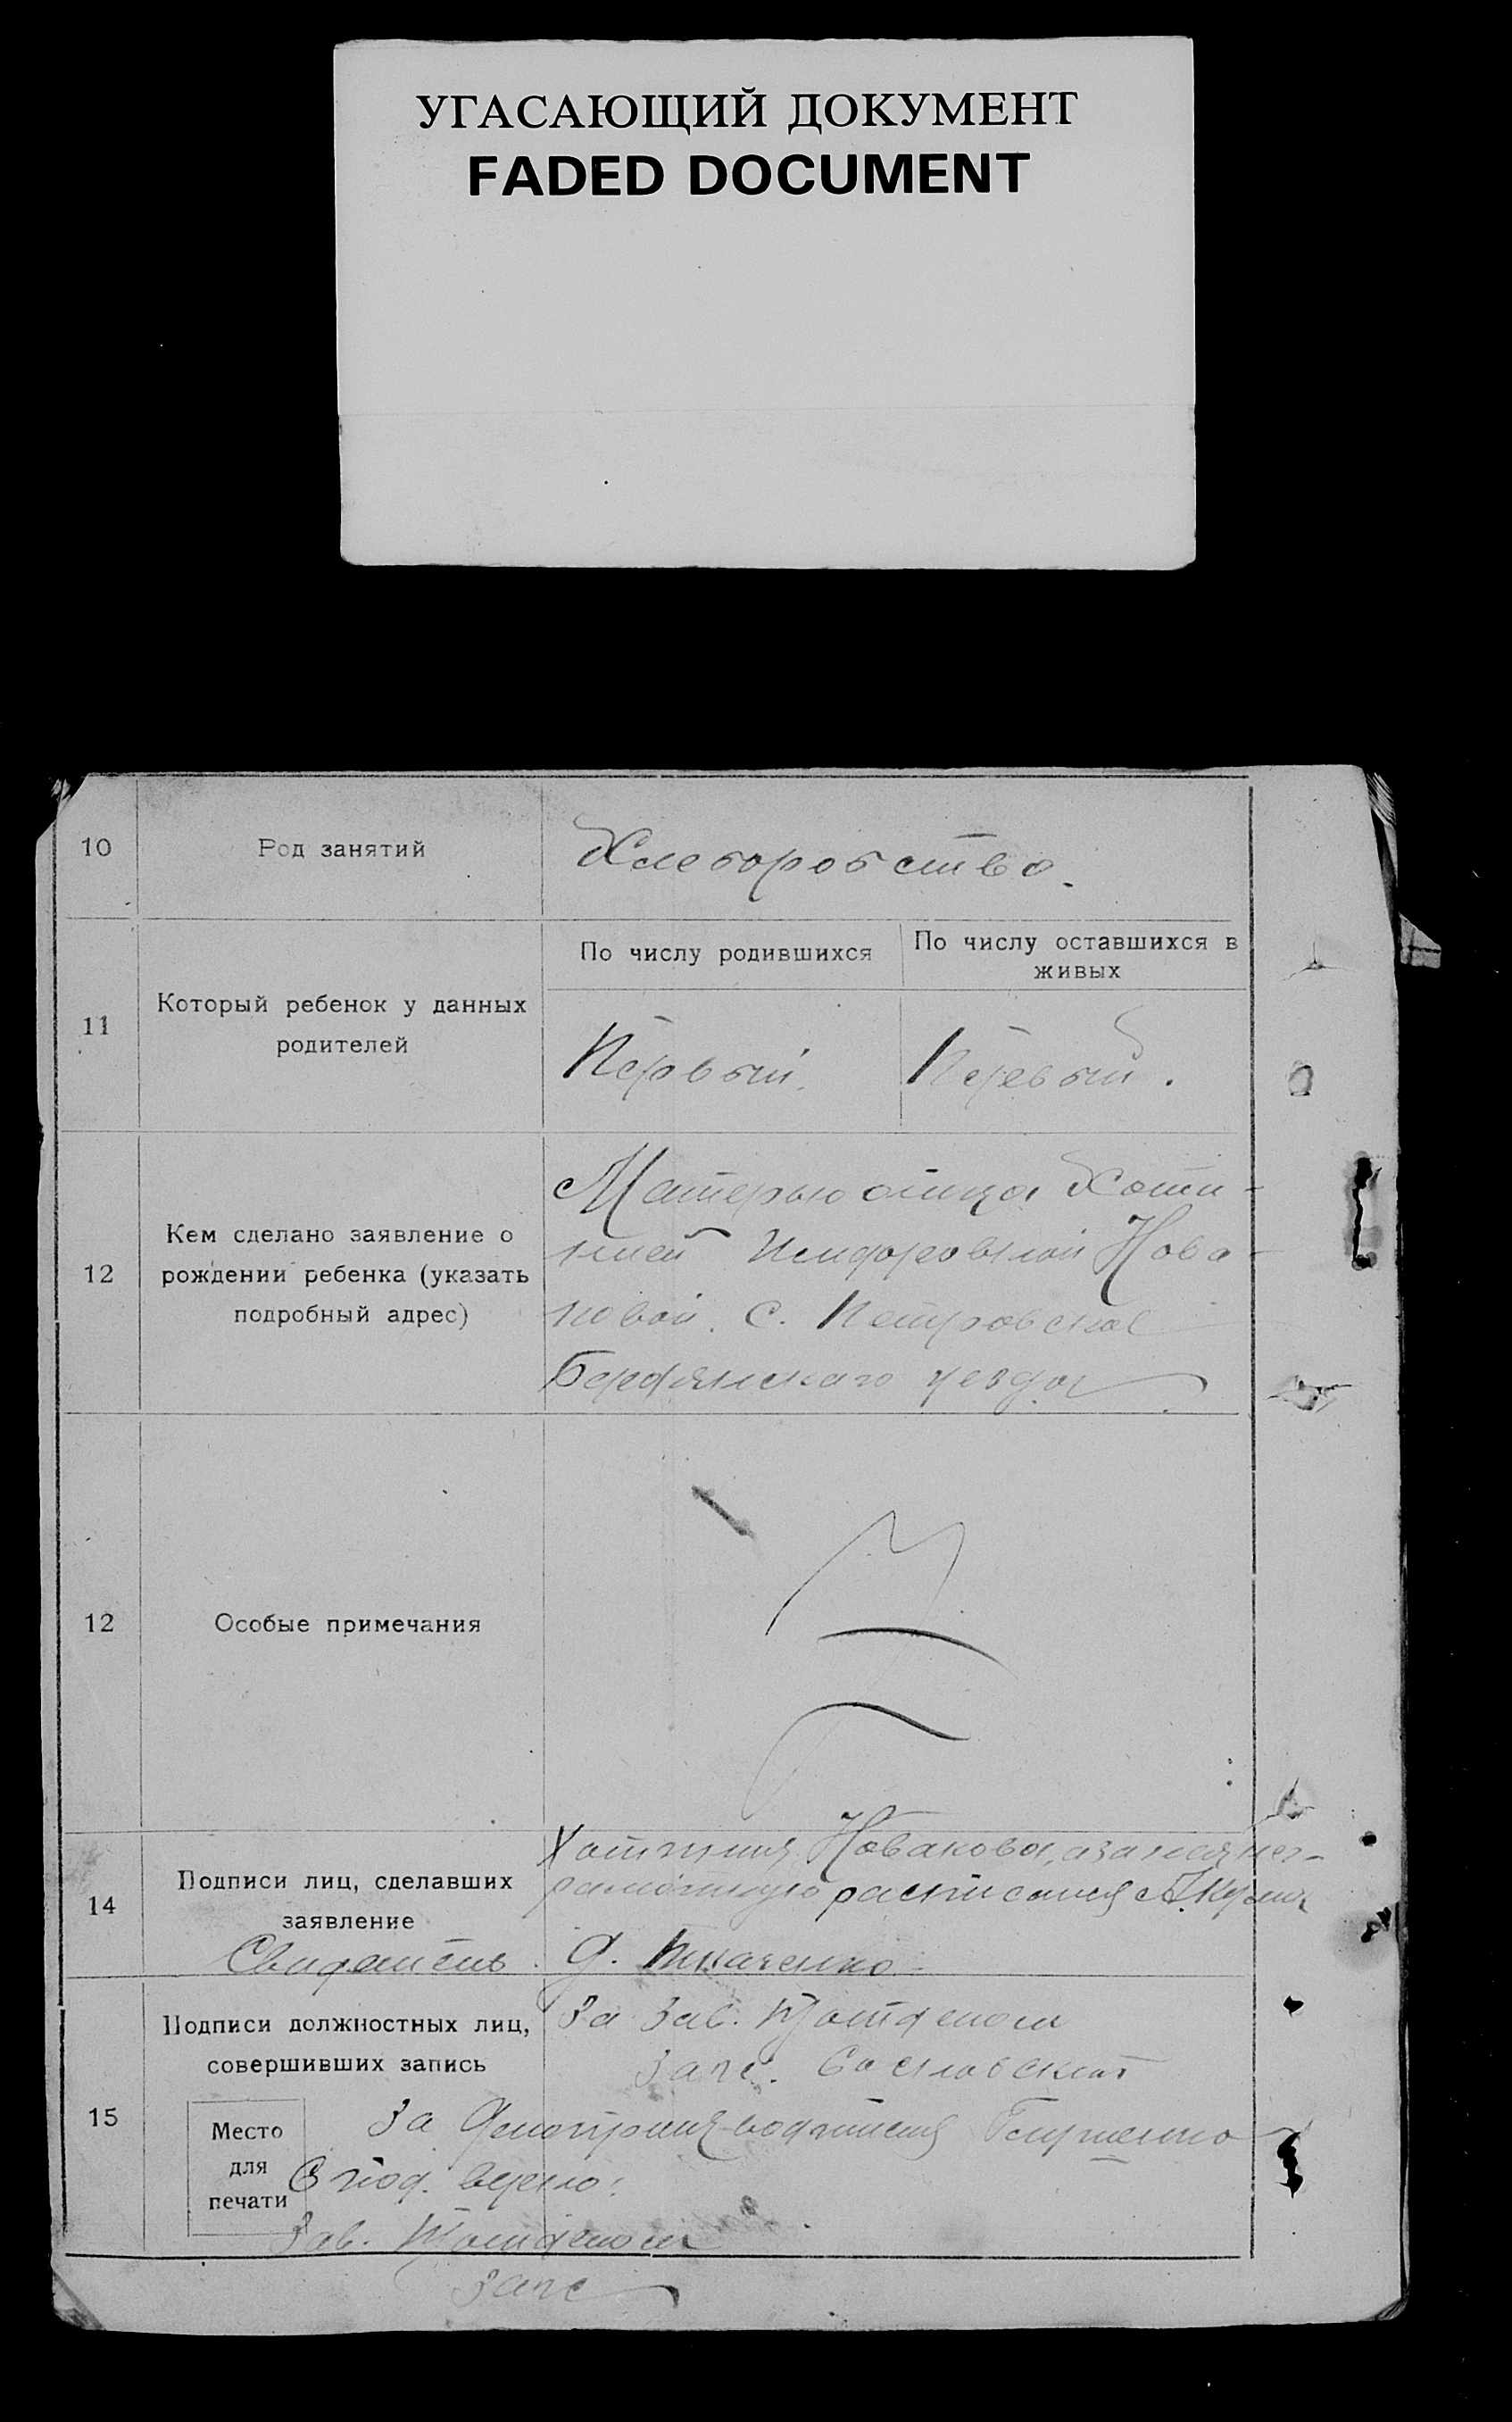 УГАСАЮЩИЙ ДОКУМЕНТ
FADED DOCUMENT
10
Род занятий
Хлеборобство.
11
Который ребенок у данных
родителей
По числу родившихся
По числу оставшихся в
живых
Первый.
Первый.
12
Кем сделано заявление о
рождении ребенка (указать
подробный адрес)
Матерью отца Хоти-
нией Исидоровной Нова-
ковой. с. Петровское
Бердянского уезда
12
Особые примечания
14
Подписи лиц, сделавших
заявление
Свидетель
Новакова, а за нея нег-
рамотную расписался
Ткаченко
15
Подписи должностных лиц,
совершивших запись
Место
для
печати
За Зав. П/отделом
загс.
За
С под. верно:
Зав. П/отделом
загс